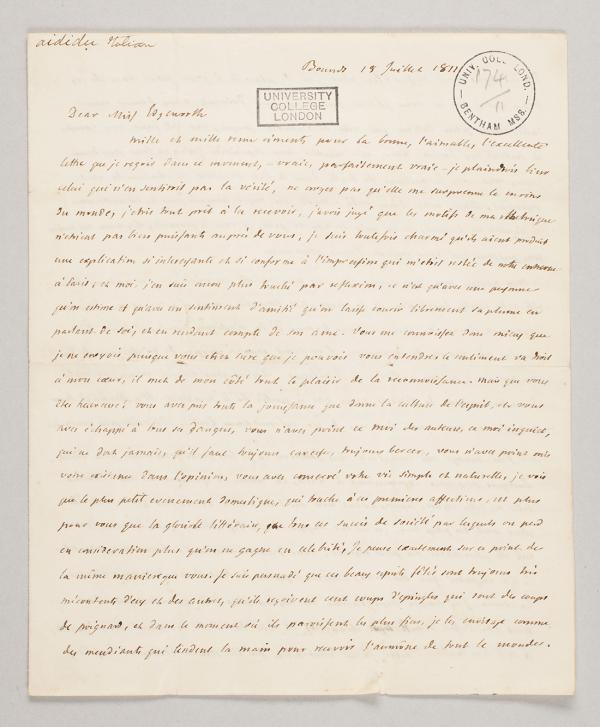 Bounds 18 Juillet 1811
UNIV. COLL. LOND.
174
11
BENTHAM MSS.
UNIVERSITY
COLLEGE
LONDON
Dear Miss Edgeworth
mille et mille remerciments pour la bonne, l'aimable, l'excellente
lettre que je reçois dans ce moment, — vraie, parfaitement vraie — je plaindrois bien
celui qui n'en sentiroit pas la vérité, ne croyez pas qu'elle me surprenne le moins
du monde; j'étois tout prêt à la recevoir, j'avois jugé que les motifs de ma rhétorique
n'étoient pas bien puissants auprès de vous, je suis toutefois charmé qu'ils aient produit
une explication si interessante et si conforme à l'impression qui m'étoit restée de notre
à Paris, et moi j'en suis encor plus touché par reflexion, ce n'est qu'avec une personne
qu'on estime et qu'avec un sentiment d'amitié qu'on laisse courir librement sa plume en
parlant de soi, et en rendant compte de son ame. Vous me connoissez donc mieux que
je ne croyois puisque vous étiez sûre que je pouvois vous entendre, ce sentiment va droit
à mon cœur, il met de mon côté tout le plaisir de la reconnoissance. Mais que vous
êtes heureuse! vous avez pris toute la jouissance que donne la culture de l'esprit, et vous
avez échappé à tous ses dangers, vous n'avez point ce moi des auteurs, ce moi inquiet,
qui ne dort jamais, qu'il faut toujours caresser, toujours bercer, vous n'avez point mis
votre existence dans l'opinion, vous avez conservé votre vie simple et naturelle, je vois
que le plus petit evenement domestique, qui touche à ces premieres affections, est plus
pour vous que la gloriole littéraire, que tous ces succès de société par lesquels on perd
en consideration plus qu'on ne gagne en célébrité, Je pense exactement sur ce point de
la même maniere que vous. Je suis persuadé que ces beaux esprits fêtés sont toujours très
mécontents d'eux et des autres, qu'ils reçoivent cent coups d'épingles qui sont des coups
de poignard, et dans le moment où ils paroissent les plus fiers, je les envisage comme
des mendiants qui tendent la main pour recevoir l'aumône de tout le monde.